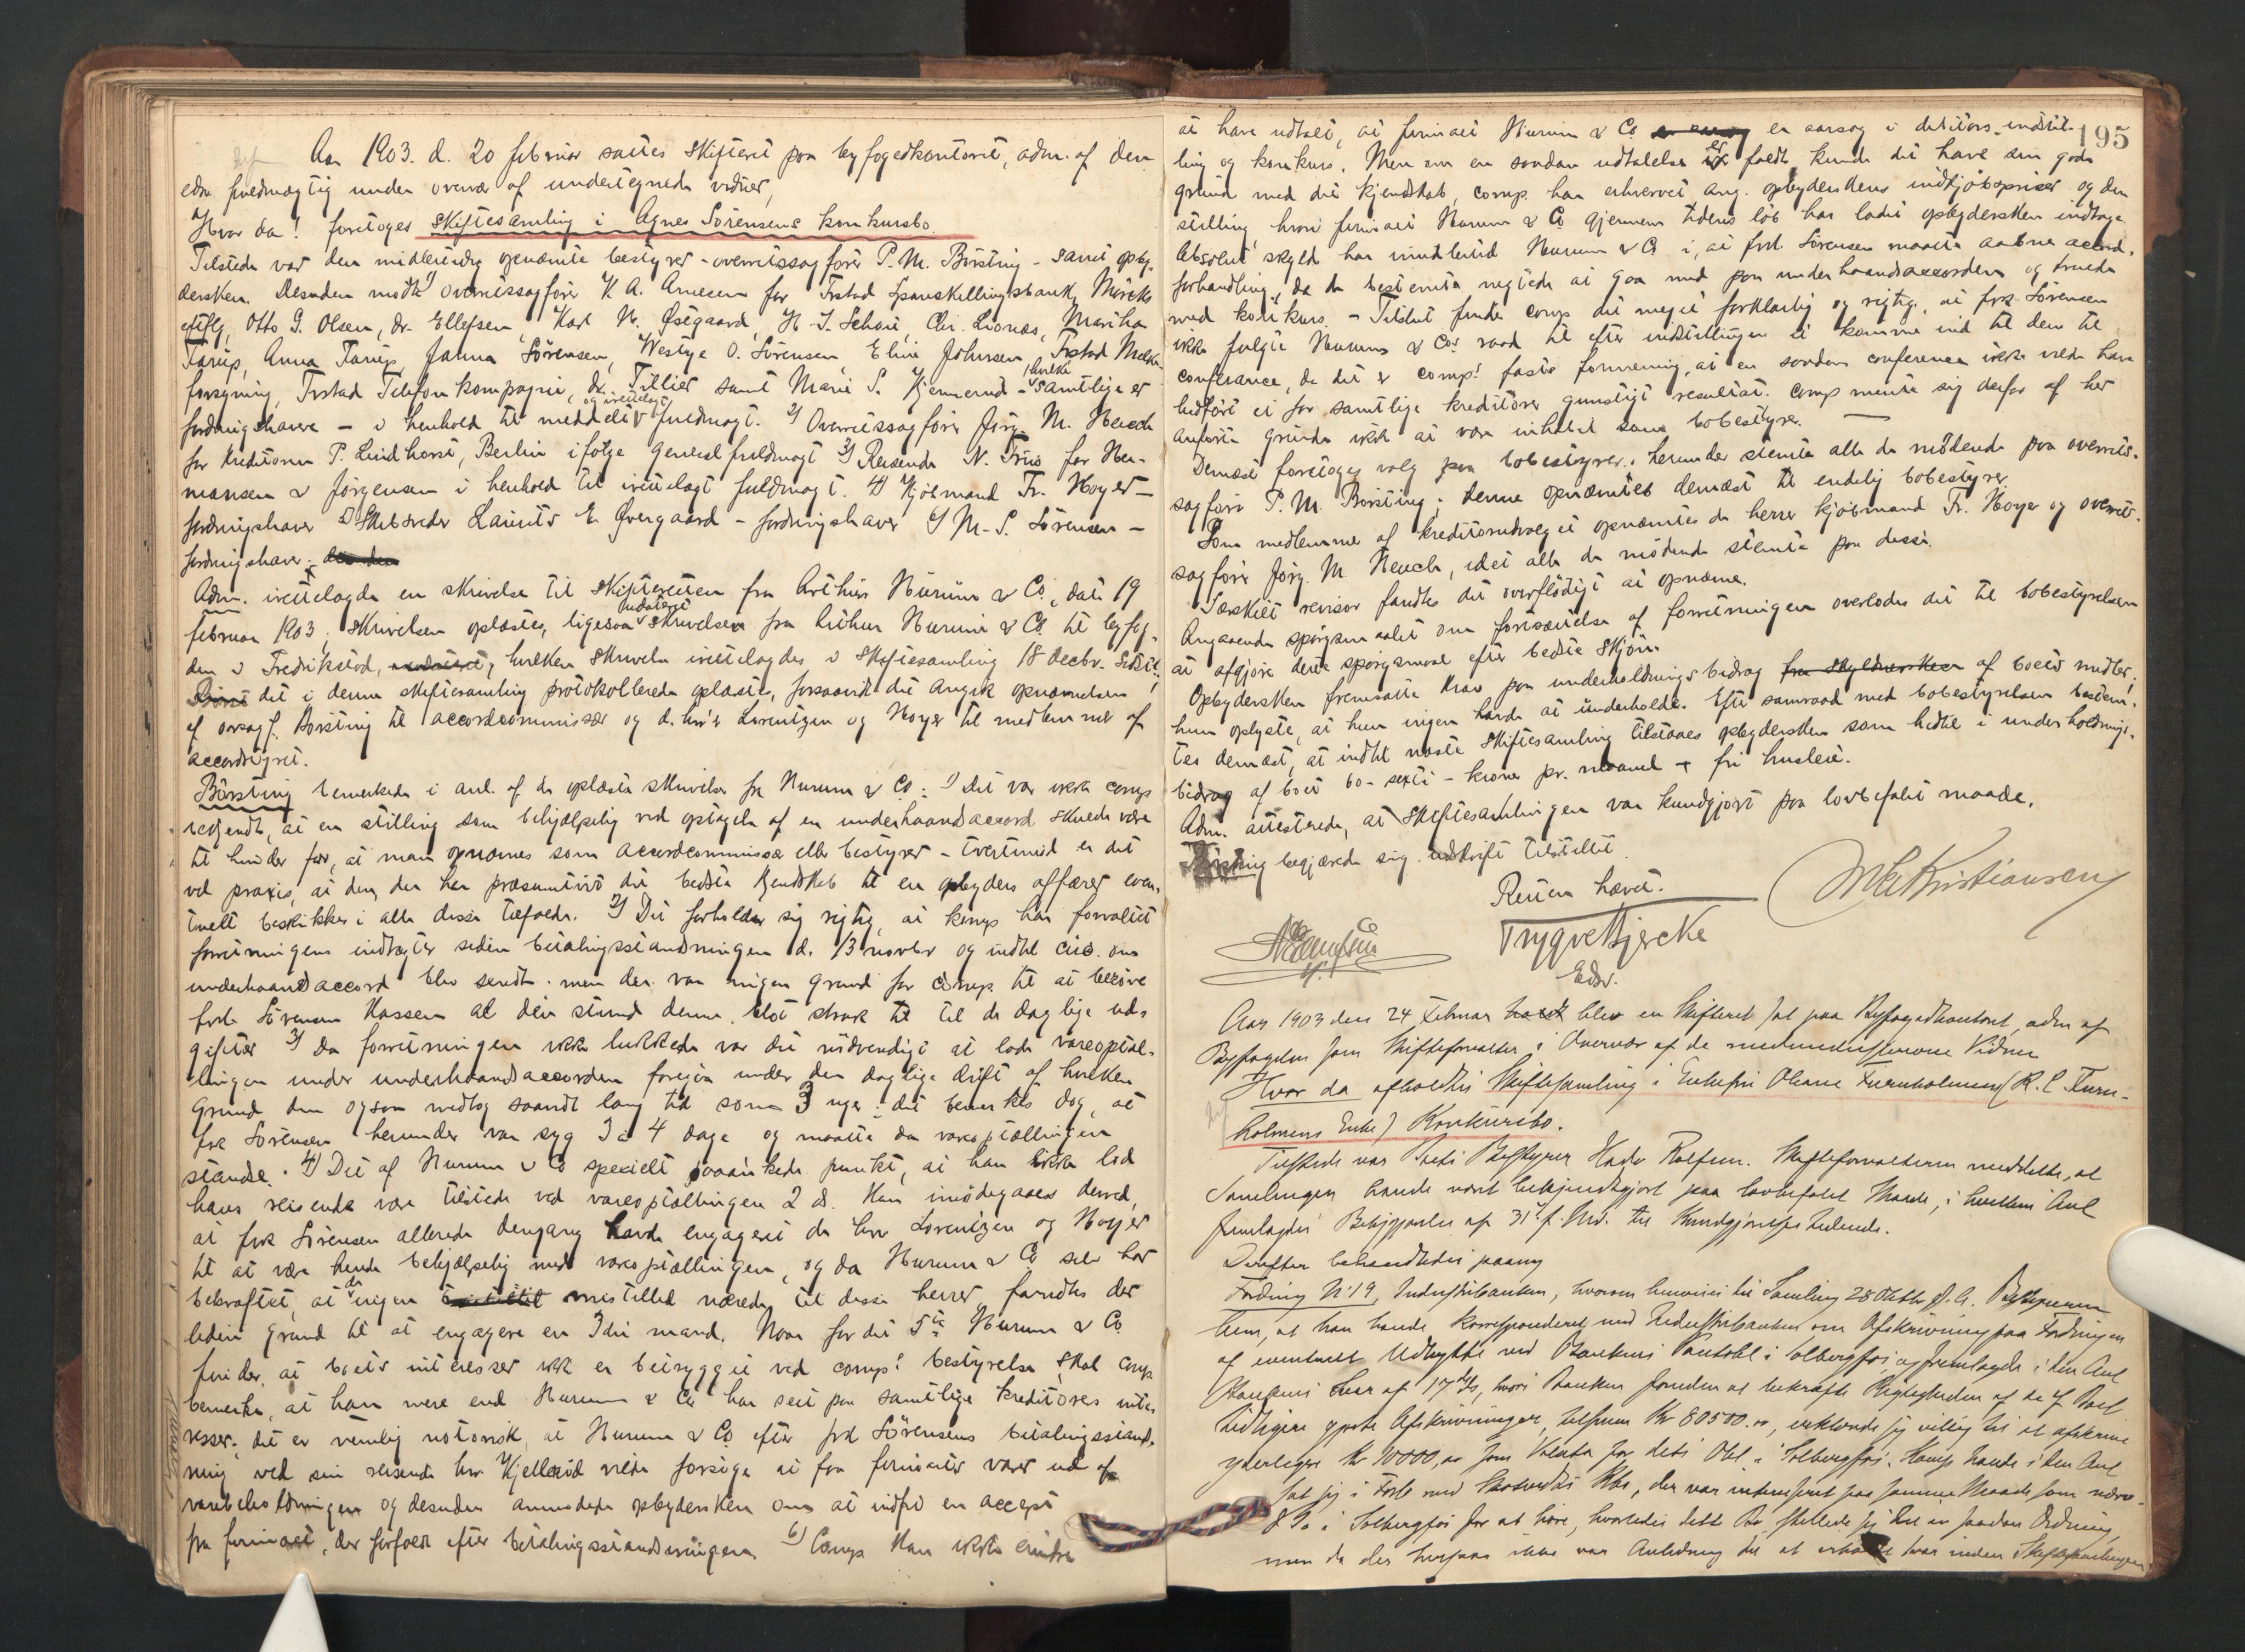 Aar 1903. d. 20 februar sattes Skifteret paa byfogedkontoret, adm. af den
edsv. fuldmægtig under overvær af undertegnede vidner,
Hvor da! foretoges Skiftesamling i Agnes Sörensens konkursbo.
Tilstede var den midlertidig opnævnte bestyrer - overretssagförer P. M. Börsting - samt opby-
dersken. Desuden mödte 1) Overretssagförer K. A. Arnesen for Frstad Spareskillingsbank,
eftflg, Otto G. Olsen, dr. Ellefsen, Karl N. Østgaard, H. J. Schou, Chr. Lionæs, Martha
Tarup, Anna Tarup, Janna Sörensen, Westye O. Sörensen, Eline Johnsen, Frstad Melke-
forsyning, Frstad Telefonkompagni, dr. Tillier samt Marie S. Kjennerud - hvilke samtlige er
fordringshavere - i henhold til meddelt og irettelagt fuldmagt. 2) Overretssagförer Jörg. M. Heuch
for kreditoren P. Lindhorst, Berlin ifölge generalfuldmagt 3) Reisende N. Friis for Her-
mansen & Jörgensen i henhold til irettelagt fuldmagt. 4) Kjöbmand Fr. Hoyer -
fordringshaver 5) Skibsreder Lauritz E. Øvergaard - fordringshaver 6) M. S. Sörensen -
fordringshaver.
Adm. irettelagde en skrivelse til Skifteretten fra Arthur Nurum & Co, dat. 19
februar 1903. Skrivelsen oplæstes, ligesaa udateret skrivelse fra Arthur Nurum & Co. til byfog-
den i Fredrikstad, hvilken skrivelse irettelagdes i Skiftesamling 18 decbr. Sidst
det i denne skiftesamling protokollerede oplæstes, forsaavidt det angik opnævnelsen
af orsagf. Börsting til accordcommissær og d'hrr. Lorentzen og Hoyer til medlemmer af
accordstyret.
Börsting bemerkede i anl. af de oplæste skrivelser fra Nurum & Co: 1) Det var ikke comp
bekjendt, at en stilling som behjælpelig ved optagelse af en underhaandsaccord skulde være
til hinder for, at man opnævnes som accordcommissær eller bestyrer - tvertimod er det
vel praxis, at den, der har præsumtivt det bedste kjendskab til en opbyders affærer even-
tuelt beskikkes i alle disse tilfælde. 2) Det forholder sig rigtig, at komp har forvaltet
forretningens indtægter siden betalingsstandsningen d. 13 novbr og indtil circ. om
underhaandsaccord blev sendt. men der var ingen grund for comp til at beröve
frk Sörensen kassen al den stund denne slot strak til til de daglige ud-
gifter 3) Da forretningen ikke lukkede var det nödvendigt at lade vareoptæl-
lingen under underhaandsaccorden foregaa under den daglige drift af hvilken
grund den ogsaa medtog saavidt lang tid som 3 uger; det bemerkes dog, at
frk Sörensen herunder var syg 3 à 4 dage og maatte da vareoptællingen
standse. 4) Det af Nurum & Co specielt paaankede punkt, at han ikke lod
hans reisende være tilstede ved vareoptællingen 2 d. Kan imödegaaes derved,
at frk Sörensen allerede dengang havde engageret de hrr Lorentzen og Hoyer
til at være hende behjælpelig med vareoptællingen, og da Nurum & Co selv har
bekræftet, at der ingen mistillid næredes til disse herrer fandtes der
liden grund til at engagere en 3die mand. Naar for det 5te Nurum & Co
finder, at boets interesser ikke er betrygget ved comps bestyrelse, skal comp
bemerke, at han mere end Nurum & Co har seet paa samtlige kreditorers inte-
resser; det er nemlig notorisk, at Nurum & Co efter frk Sörensens betalingsstands-
ning ved sin reisende hrr Kjelleröd vilde forsöge at faa firmaets varer ud af
varebeholdningen og desuden anmodede opbydersken om at indfri en accept
fra firmaet, der forfaldt efter betalingsstandsningen. 6) Comp kan ikke erindre
195
at have udtalt, at firmaet Nurum & Co er aarsag i debitors indstil-
ling og konkurs. Men om en saadan udtalelse er faldt, kunde det have sin gode
grund med det kjendskab, comp. har erhvervet ang. opbyderskens indkjöbspriser og den
stilling, hvori firmaet Nurum & Co gjennem tidens löb har ladet opbydersken indtage.
Absolut skyld har imidlertid Nurum & Co i, at frk. Sörensen maatte aabne accord-
forhandling, da de bestemte negtede at gaa med paa underhaandsaccorden og truede
med konkurs. - Tilslut finder comp det meget forklarlig og rigtig, at frk. Sörensen
ikke fulgte Nurums & Cos raad til efter indstillingen at komme ind til dem til
conferance, da det er comps faste formening, at en saadan conference ikke vilde have
ledfört et for samtlige kreditorer gunstigt resultat. Comp mente sig derfor af her
anförte grunde ikke at være inhabil som bobestyrer.
Dernæst foretoges valg paa bobestyrer; herunder stemte alle de mödende paa overrets-
sagförer P. M. Börsting; denne opnævntes dernæst til endelig bobestyrer.
Som medlemmer af kreditorudvalget opnævntes de herrer kjöbmand Fr. Hoyer og overrets-
sagförer Jörg. M. Heuch, idet alle de mödende stemte paa disse.
Særskilt revisor fandtes det overflödigt at opnævne.
Angaaende spörgsmaalet om fortsættelse af forretningen overlodes det til bobestyrelsen
at afgjöre dette spörgsmaal efter bedste skjön.
Opbydersken fremsatte krav paa underholdningsbidrag fra skyldnersken af boets midler;
hun oplyste, at hun ingen havde at underholde. Efter samraad med bobestyrelsen bestem-
tes dernæst, at indtil næste Skiftesamling tilstaaes opbydersken som hidtil i underholdnings-
bidrag af boet 60 - sexti - kroner pr. maaned + fri husleie.
Adm. attesterede, at Skiftesamlingen var kundgjort paa lovbefalet maade.
Börsting begjærede sig udskrift tilstillet.
Retten hævet.
Trygve Bjercke
Edsv.
M Kristiansen
Aar 1903 den 24 Februar blev en Skifteret sat paa Byfogedkontoret, adm af
Byfogden som Skifteforvalter i Overvær af de medunderskrevne Vidner
Hvor da afholdtes Skiftesamling i Enkefru Oleane Furuholmens (R. C. Furu-
holmens Enke) Konkursbo.
Tilstede var Boets Bestyrer Hadv Rolfsen. Skifteforvalteren meddelte, at
Samlingen havde været bekjendtgjort paa lovbefalet Maade, i hvilken Anl
fremlagdes Bekjgjørelse af 31 f. Md. til Kundgjørelsestidende.
Derefter behandledes paany
Fordring N 19, Industribanken, hvorom henvises til Samling 28 Oktbr f. A. Bestyreren
, at han havde korresponderet med Industribanken om Afskrivning paa Fordringen
af eventuelt Udbytte ved Bankens Panteobl i Solbergfos og fremlagde i den Anl
Bankens Skr af 17, hvori Banken foruden at bekræfte Rigtigheden af de Boet
tidligere gjorte Afskrivninger, tilsammen Kr 80500.00, erklærede sig villig til at afskrive
yderligere Kr 10000,00 som Valuta for dets Obl i Solbergfos. Komp havde i den Anl
sat sig i Forb med, der var interesseret paa samme Maade som nærv.
Bo i Solbergfos for at høre, hvorledes dette Bo stillede sig til en saadan Ordning,
men da der herpaa ikke var Anledning til at erholde Svar inden Skiftesamlingen